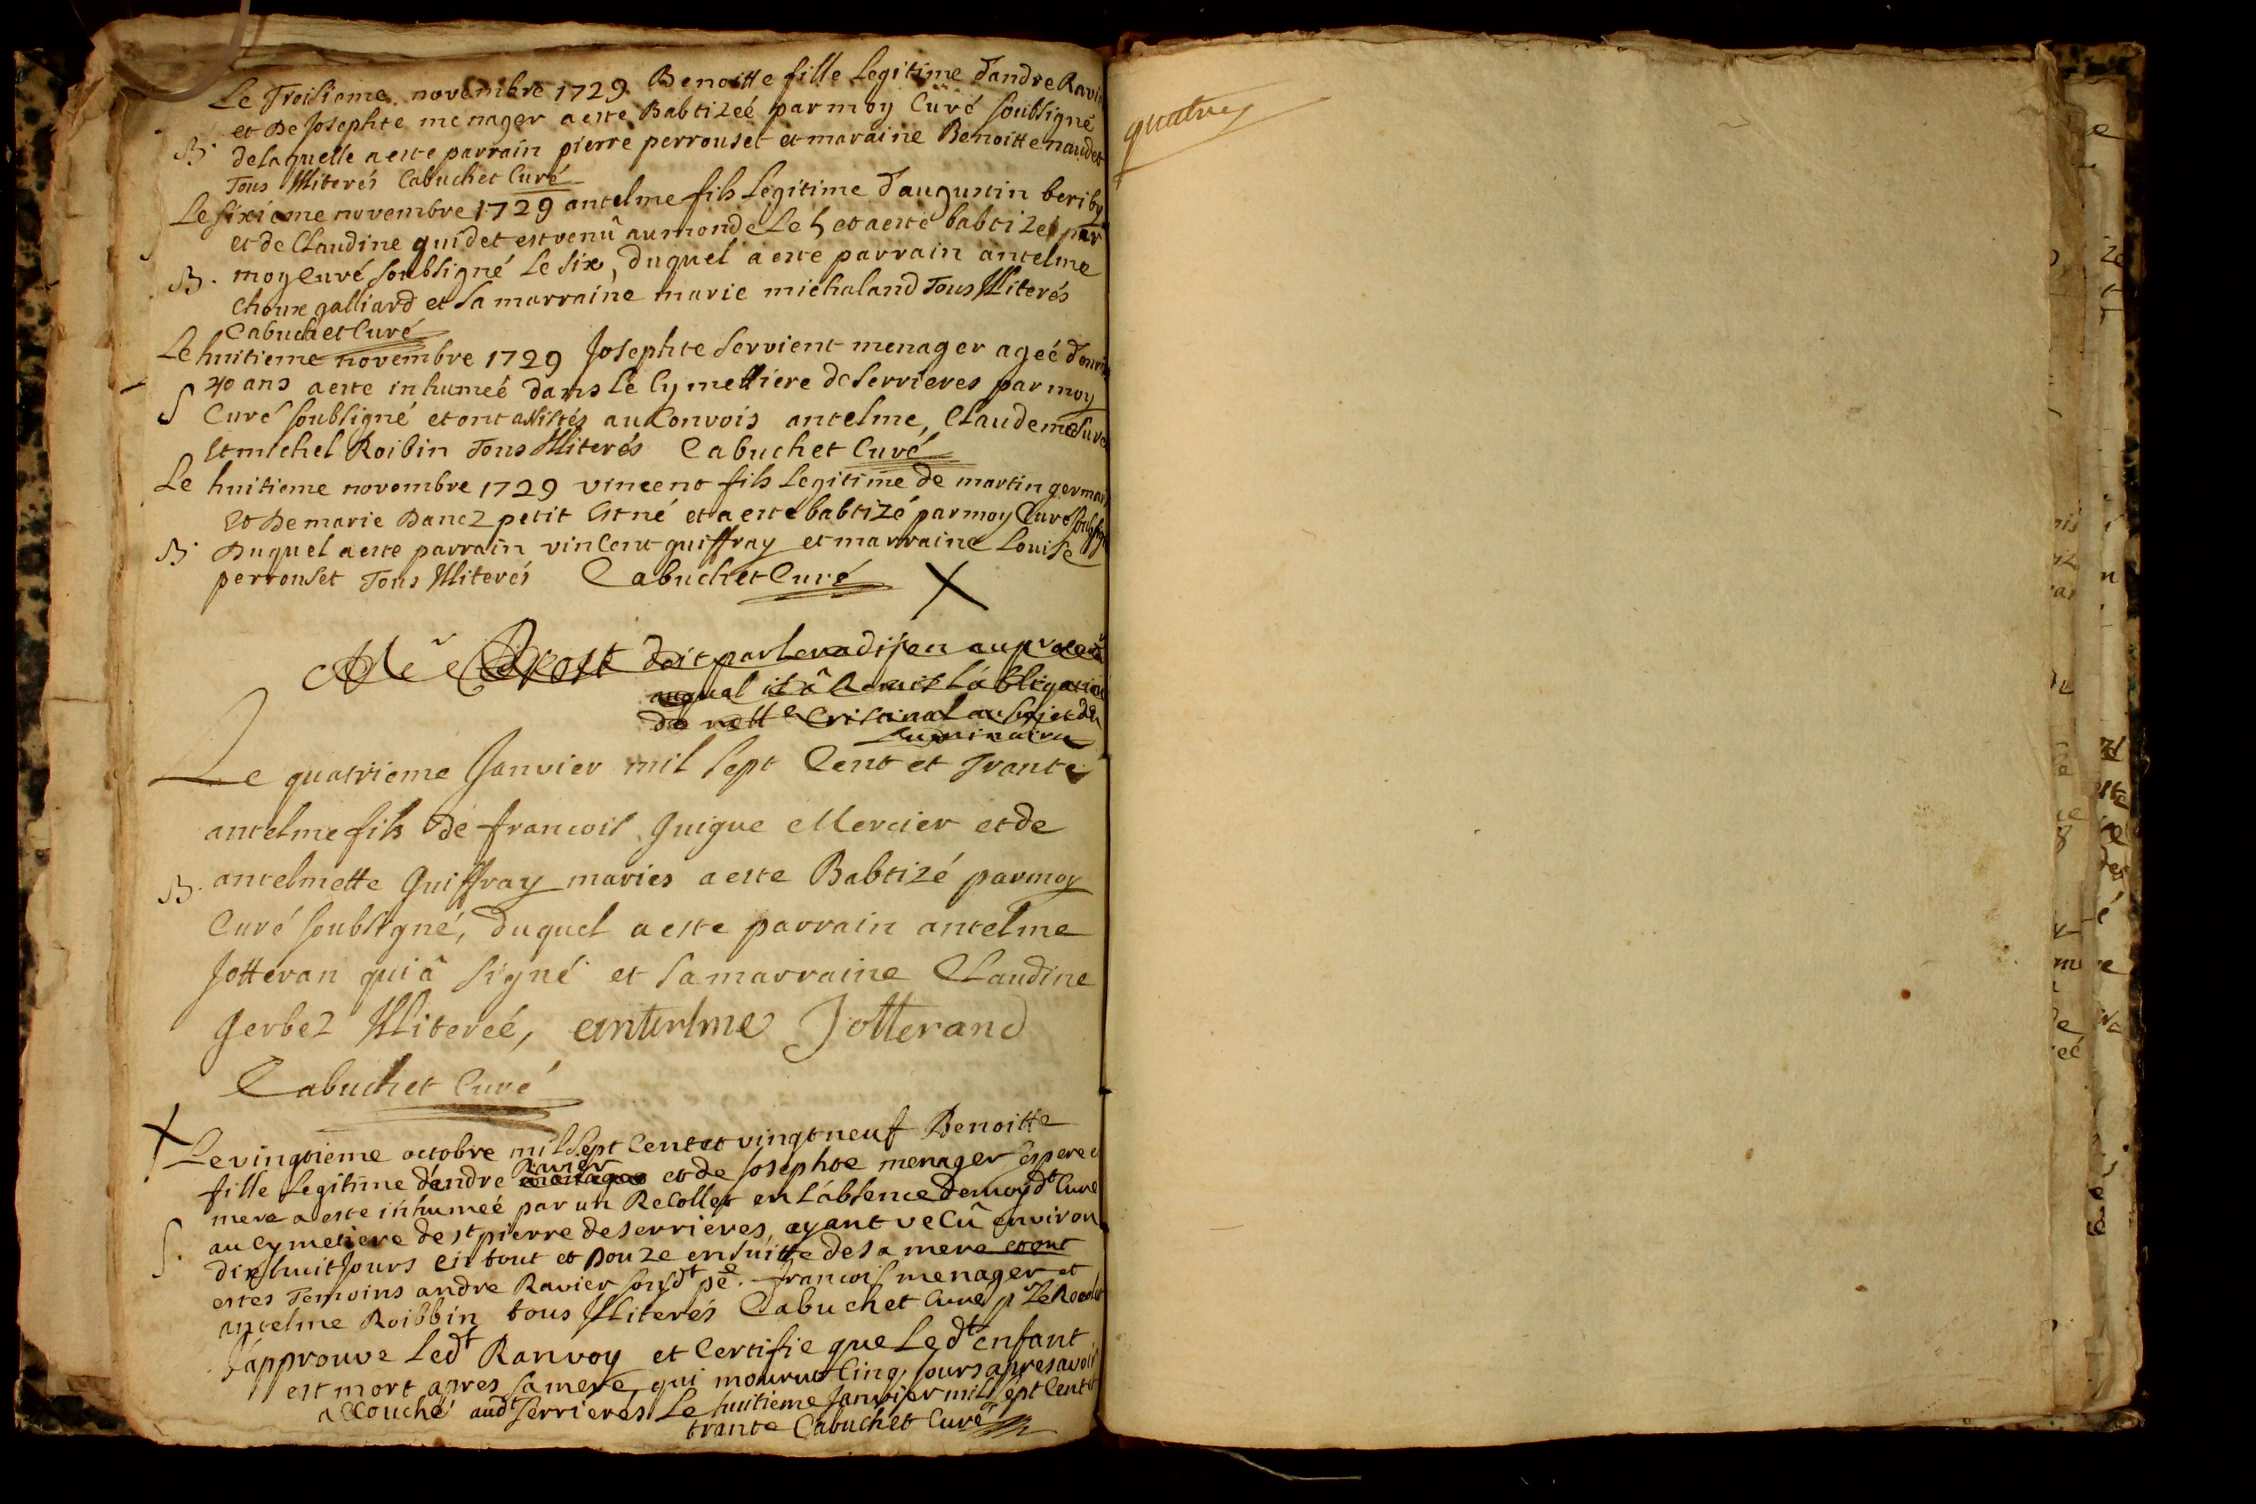 Le Troisieme novembre 1729 Benoitte fille Legitime d'andre Ravi
et De Josephte menager a este Babtizeé par moy Curé soubsigné
B. de laquelle a este parrain pierre perrouset et maraine Benoitte naudet
Tous Illiterés Cabuchet Curé
Le sixieme novembre 1729 antelme fils Legitime d'augustin
et de Claudine guidet est venu au monde Le 5 et a este babtizé par
B. moy Curé soubsigné Le six, duquel a este parrain antelme
Choux galliard et sa marraine marie michaland Tous Illiterés
Cabuchet Curé
Le huitieme novembre 1729 Josephte Servient menager ageé
40 ans a este inhumeé dans Le Cymettiere de Serrieres par moy
S Curé soubsigné et ont assistés au Convois antelme, Claude
Et michel Roibin Tous Illiterés Cabuchet Curé
Le huitieme novembre 1729 vincent fils Legitime de martin german
Et De marie Danez petit Est né et a este babtizé par moy Curé
B. Duquel a este parrain vincent guiffray et marraine Louise
perrouset Tous Illiterés Cabuchet Curé X
doit
auquel il â Remis L'obligation
au sujet du
Luminaire
Le quatrieme Janvier mil sept Cent et Trante
antelme fils de francois Guigue Mercier et de
B. antelmette Guiffray maries a este Babtizé par moy
Curé soubsigné, duquel a este parrain antelme
Jotteran qui â signé et sa marraine Claudine
Gerbez Illitereé, anterlme Jotterand
Cabuchet Curé
X Le vingtieme octobre mil sept Cent et vingt neuf Benoitte
Ravier
fille Legitime d'andre menager et de Josephte menager ses pere e
mere a este inhumeé par un Recollet en L'absence De moy dt Curé
S. au Cymetiere de st pierre de serrieres, ayant veCû environ
dix huit Jours en tout et Douze en suitte de sa mere et ont
estes Temoins andre Ravier son dt pe. francois menager et
antelme Roibbin tous Illiterés Cabuchet Curé pr Le Recollet
J'approuve Ledt Ranvoy et Certifie que Le dt enfant
est mort apres sa mere, qui mourut Cinq Jours apres avoir
accouché audt Serrieres Le huitieme Janvier mil sept Cent et
trante Cabuchet Curé